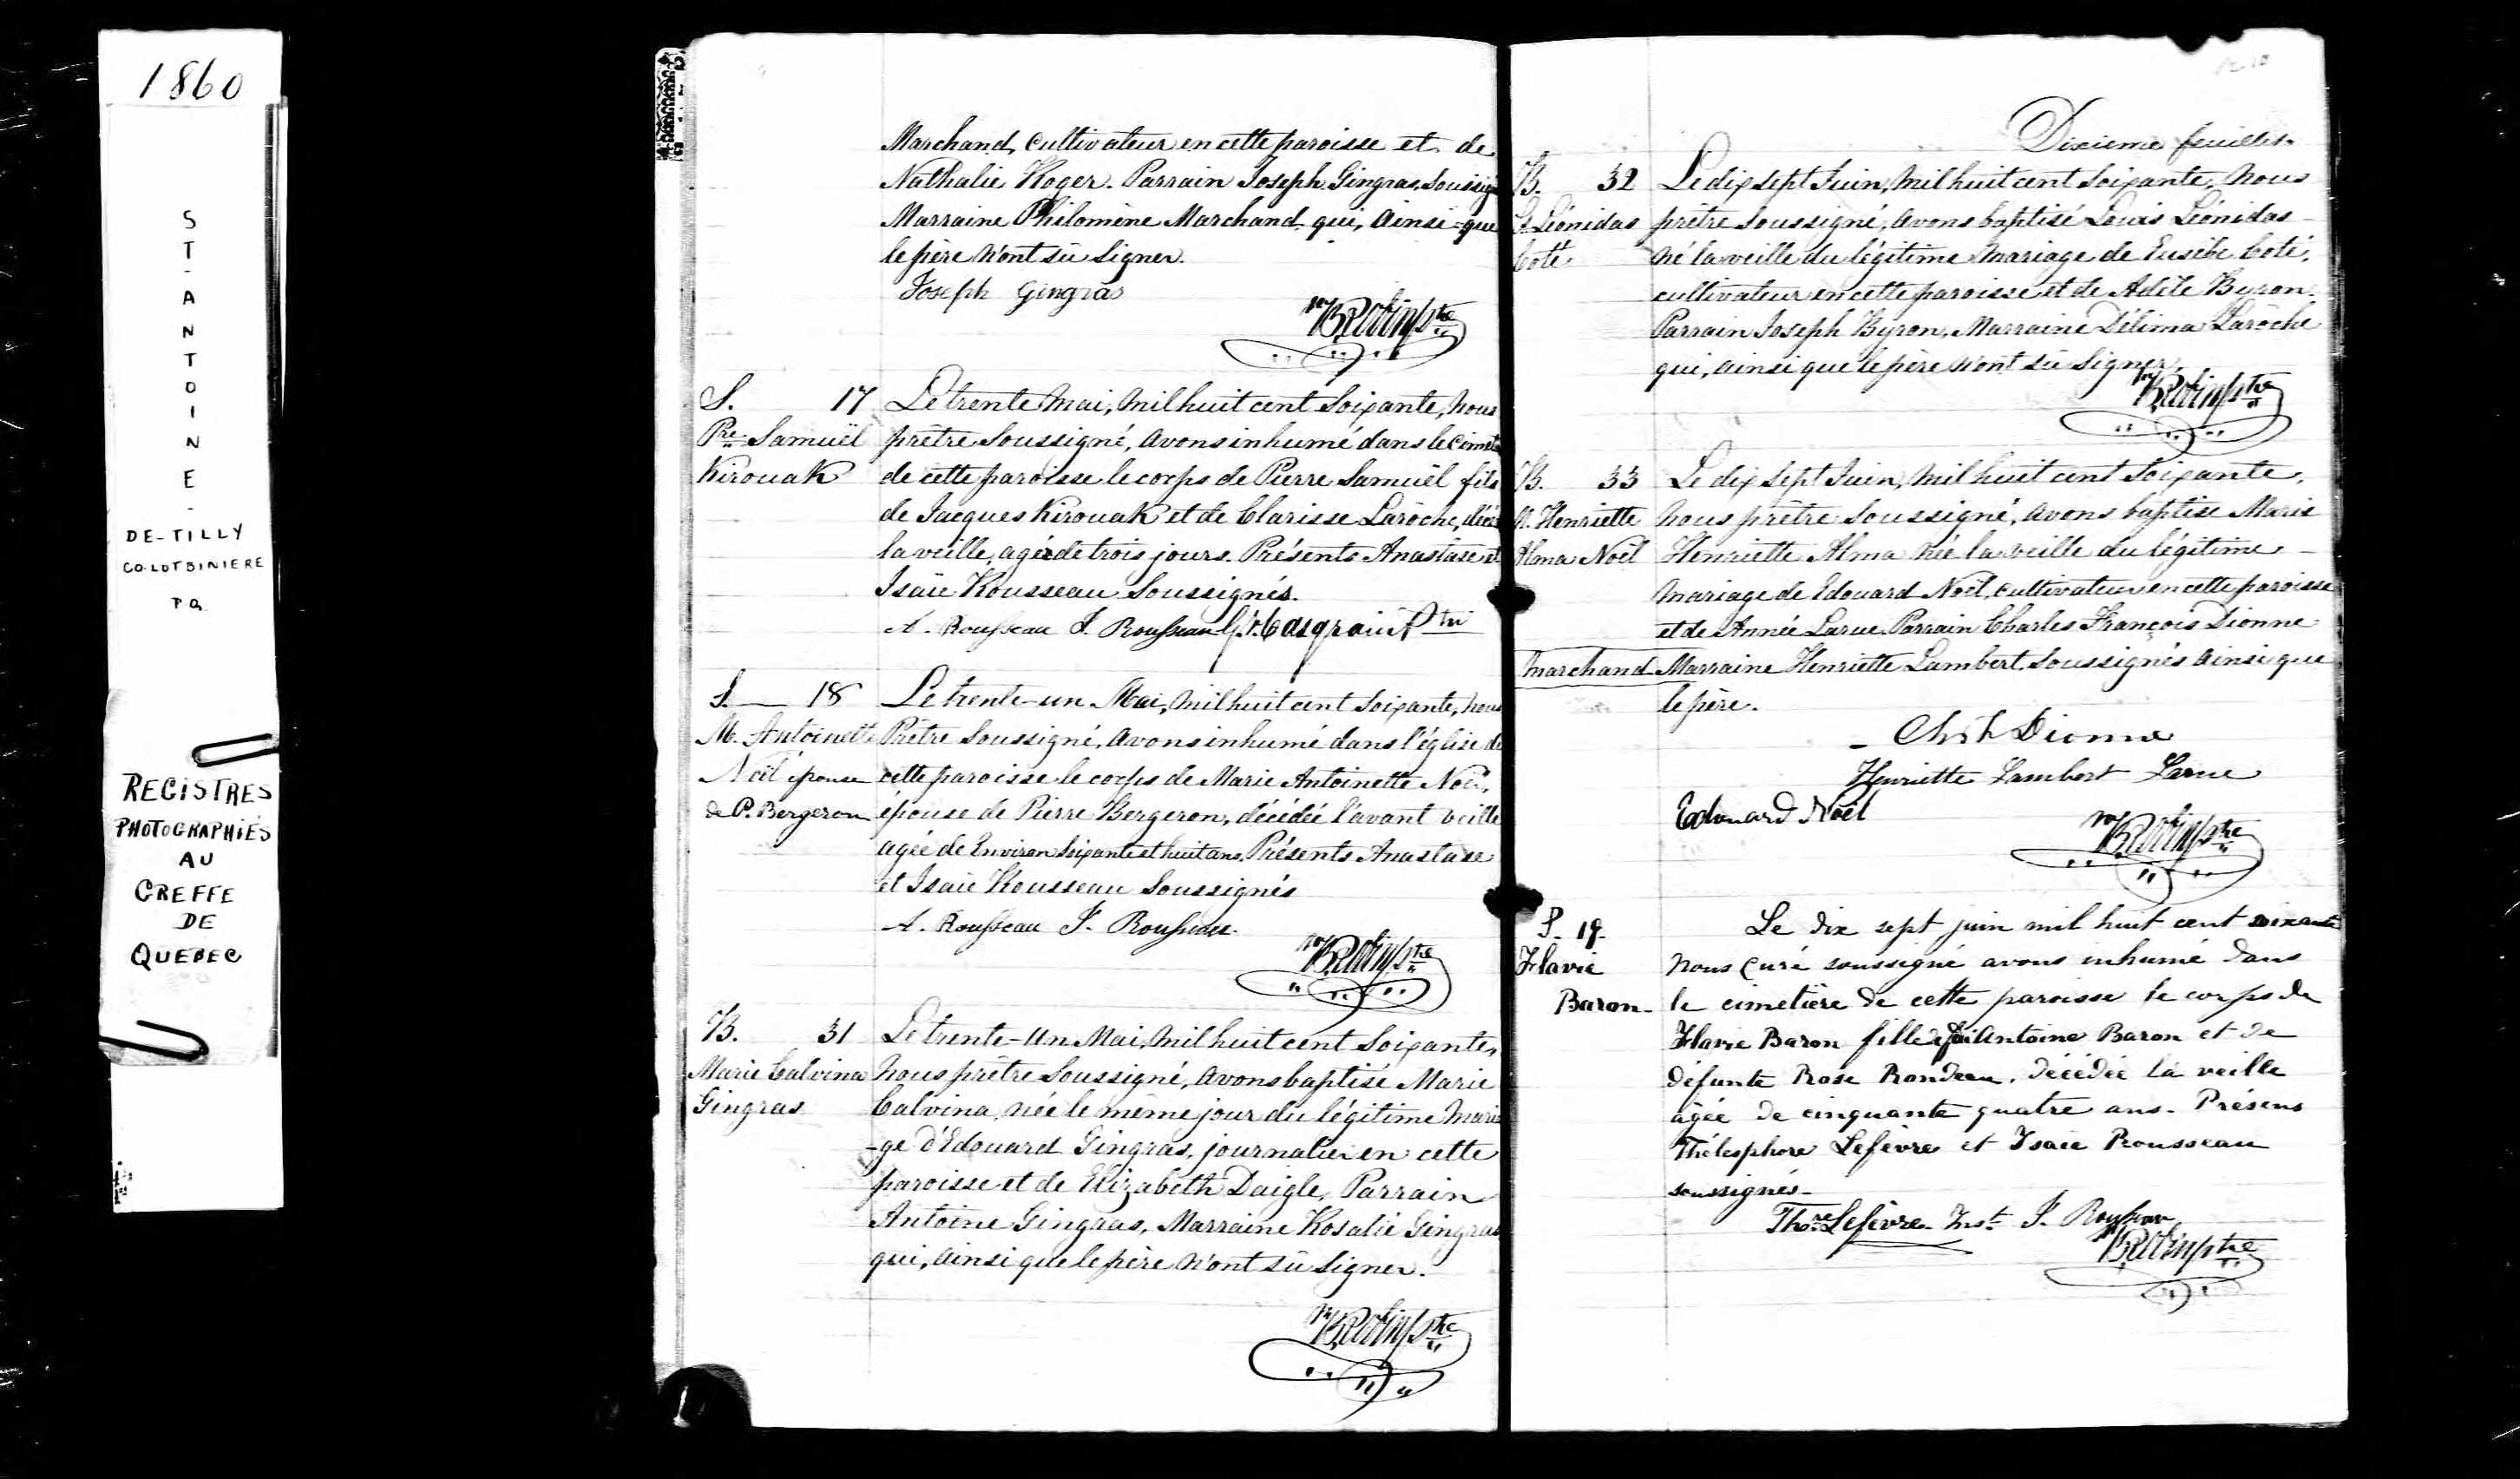 1860
ST-ANTOINE-
DE-TILLY
CO. LOTBINIERE
P Q.
REGISTRES
PHOTOGRAPHIÉS
AU
GREFFE
DE
QUEBEC
Marchand, cultivateur en cette paroisse et de
Nathalie Roger. Parrain Joseph Gingras, Soussign
Marraine Philomène Marchand qui, ainsi-que
le père n'ont sù signer.
Joseph Gingras
S. 17
Pre Samuël
Kirouak
Le trente Mai, mil huit cent soixante, nous
prêtre soussigné, avons inhumé dans le cimet
de cette paroisse le corps de Pierre Samuël fils
de Jacques Kirouak et de Clarisse Laroche, décé
la veille, agé de trois jours. Présents Anastase et
Isaïe Rousseau Soussignés.
A. Rousseau I. Rousseau Casgrain Ptre
S. 18
M. Antoinette
Noël épouse
de P. Bergeron
Le trente-un Mai, mil huit cent soixante, nous
Prêtre soussigné, avons inhumé dans l'église de
cette paroisse le corps de Marie Antoinette Noël,
épouse de Pierre Bergeron, décédée l'avant veille
agée de Environ soixante et huit ans. Présents Anastase
et Isaïe Rousseau Soussignés
A. Rousseau I. Rousseau.
B. 31
Marie Calvina
Gingras
Le trente-un Mai, mil huit cent soixante,
nous prêtre soussigné, avons baptisé Marie
Calvina, née le même jour du légitime maria
-ge d'Edouard Gingras, journalier en cette
paroisse et de Elizabeth Daigle, Parrain
Antoine Gingras, Marraine Rosalie Gingras
qui, ainsi que le père n'ont sù signer.
Dixieme feuillet.
B. 32
Ls Léonidas
Coté
Le dix sept Juin, mil huit cent soixante, nous
prêtre soussigné, avons baptisé Louis Léonidas
né la veille du légitime mariage de Eusèbe Coté,
cultivateur en cette paroisse et de Adèle Byron.
Parrain Joseph Byron, Marraine Délima Laroche
qui, ainsi que le père n'ont sù signer.
B. 33
M. Henriette
Alma Noël
Le dix sept Juin, mil huit cent soixante,
nous prêtre soussigné, avons baptisé Marie
Henriette Alma née la veille du légitime
mariage de Edouard Noël, cultivateur en cette paroisse
et de Année Larue. Parrain Charles François Dionne
marchand Marraine Henriette Lambert, soussignés ainsi que
le père.
Chs F. Dionne
Henriette Lambert Larue
Edouard Noël
S. 19.
Flavie
Baron.
Le dix sept juin mil huit cent soixante
nous Curé soussigné avons inhumé dans
le cimetière de cette paroisse le corps de
Flavie Baron fille de feu Antoine Baron et de
défunte Rose Rondeau, décédée la veille
agée de cinquante quatre ans. Présens
Thélesphore Lefèvre et Isaïe Rousseau
soussignés.
Thore Lefèvre. Inst. I. Rousseau